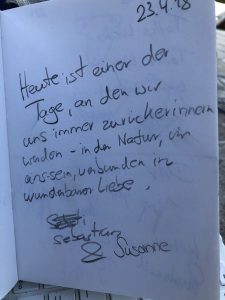 23.4.18
Heute ist einer der
Tage, an den wir
uns immer zurückerinnern
werden - in der Natur, im
uns-sein, verbunden in
wunderbarer Liebe.
Sebastian
& Susanne